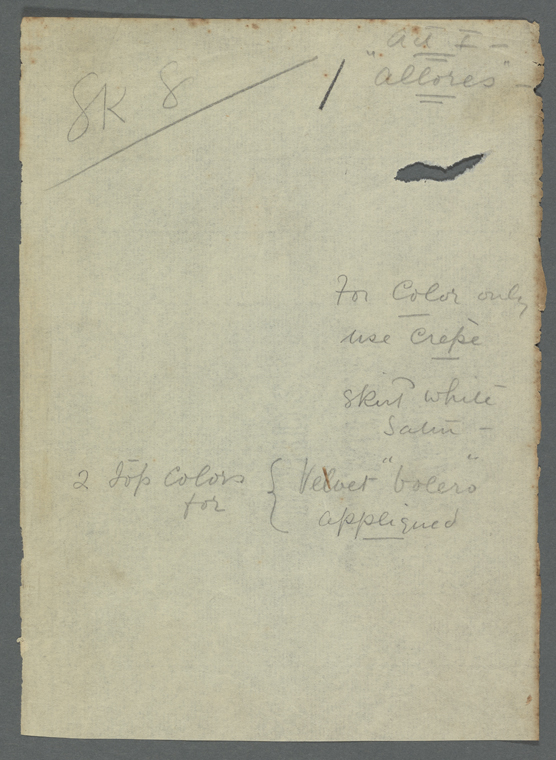 Act I —
SK 8 / "allores" —
For Color only
use Crepe
Skirt White
Satin —
2 Top Colors { Velvet "bolero"
for appliqued